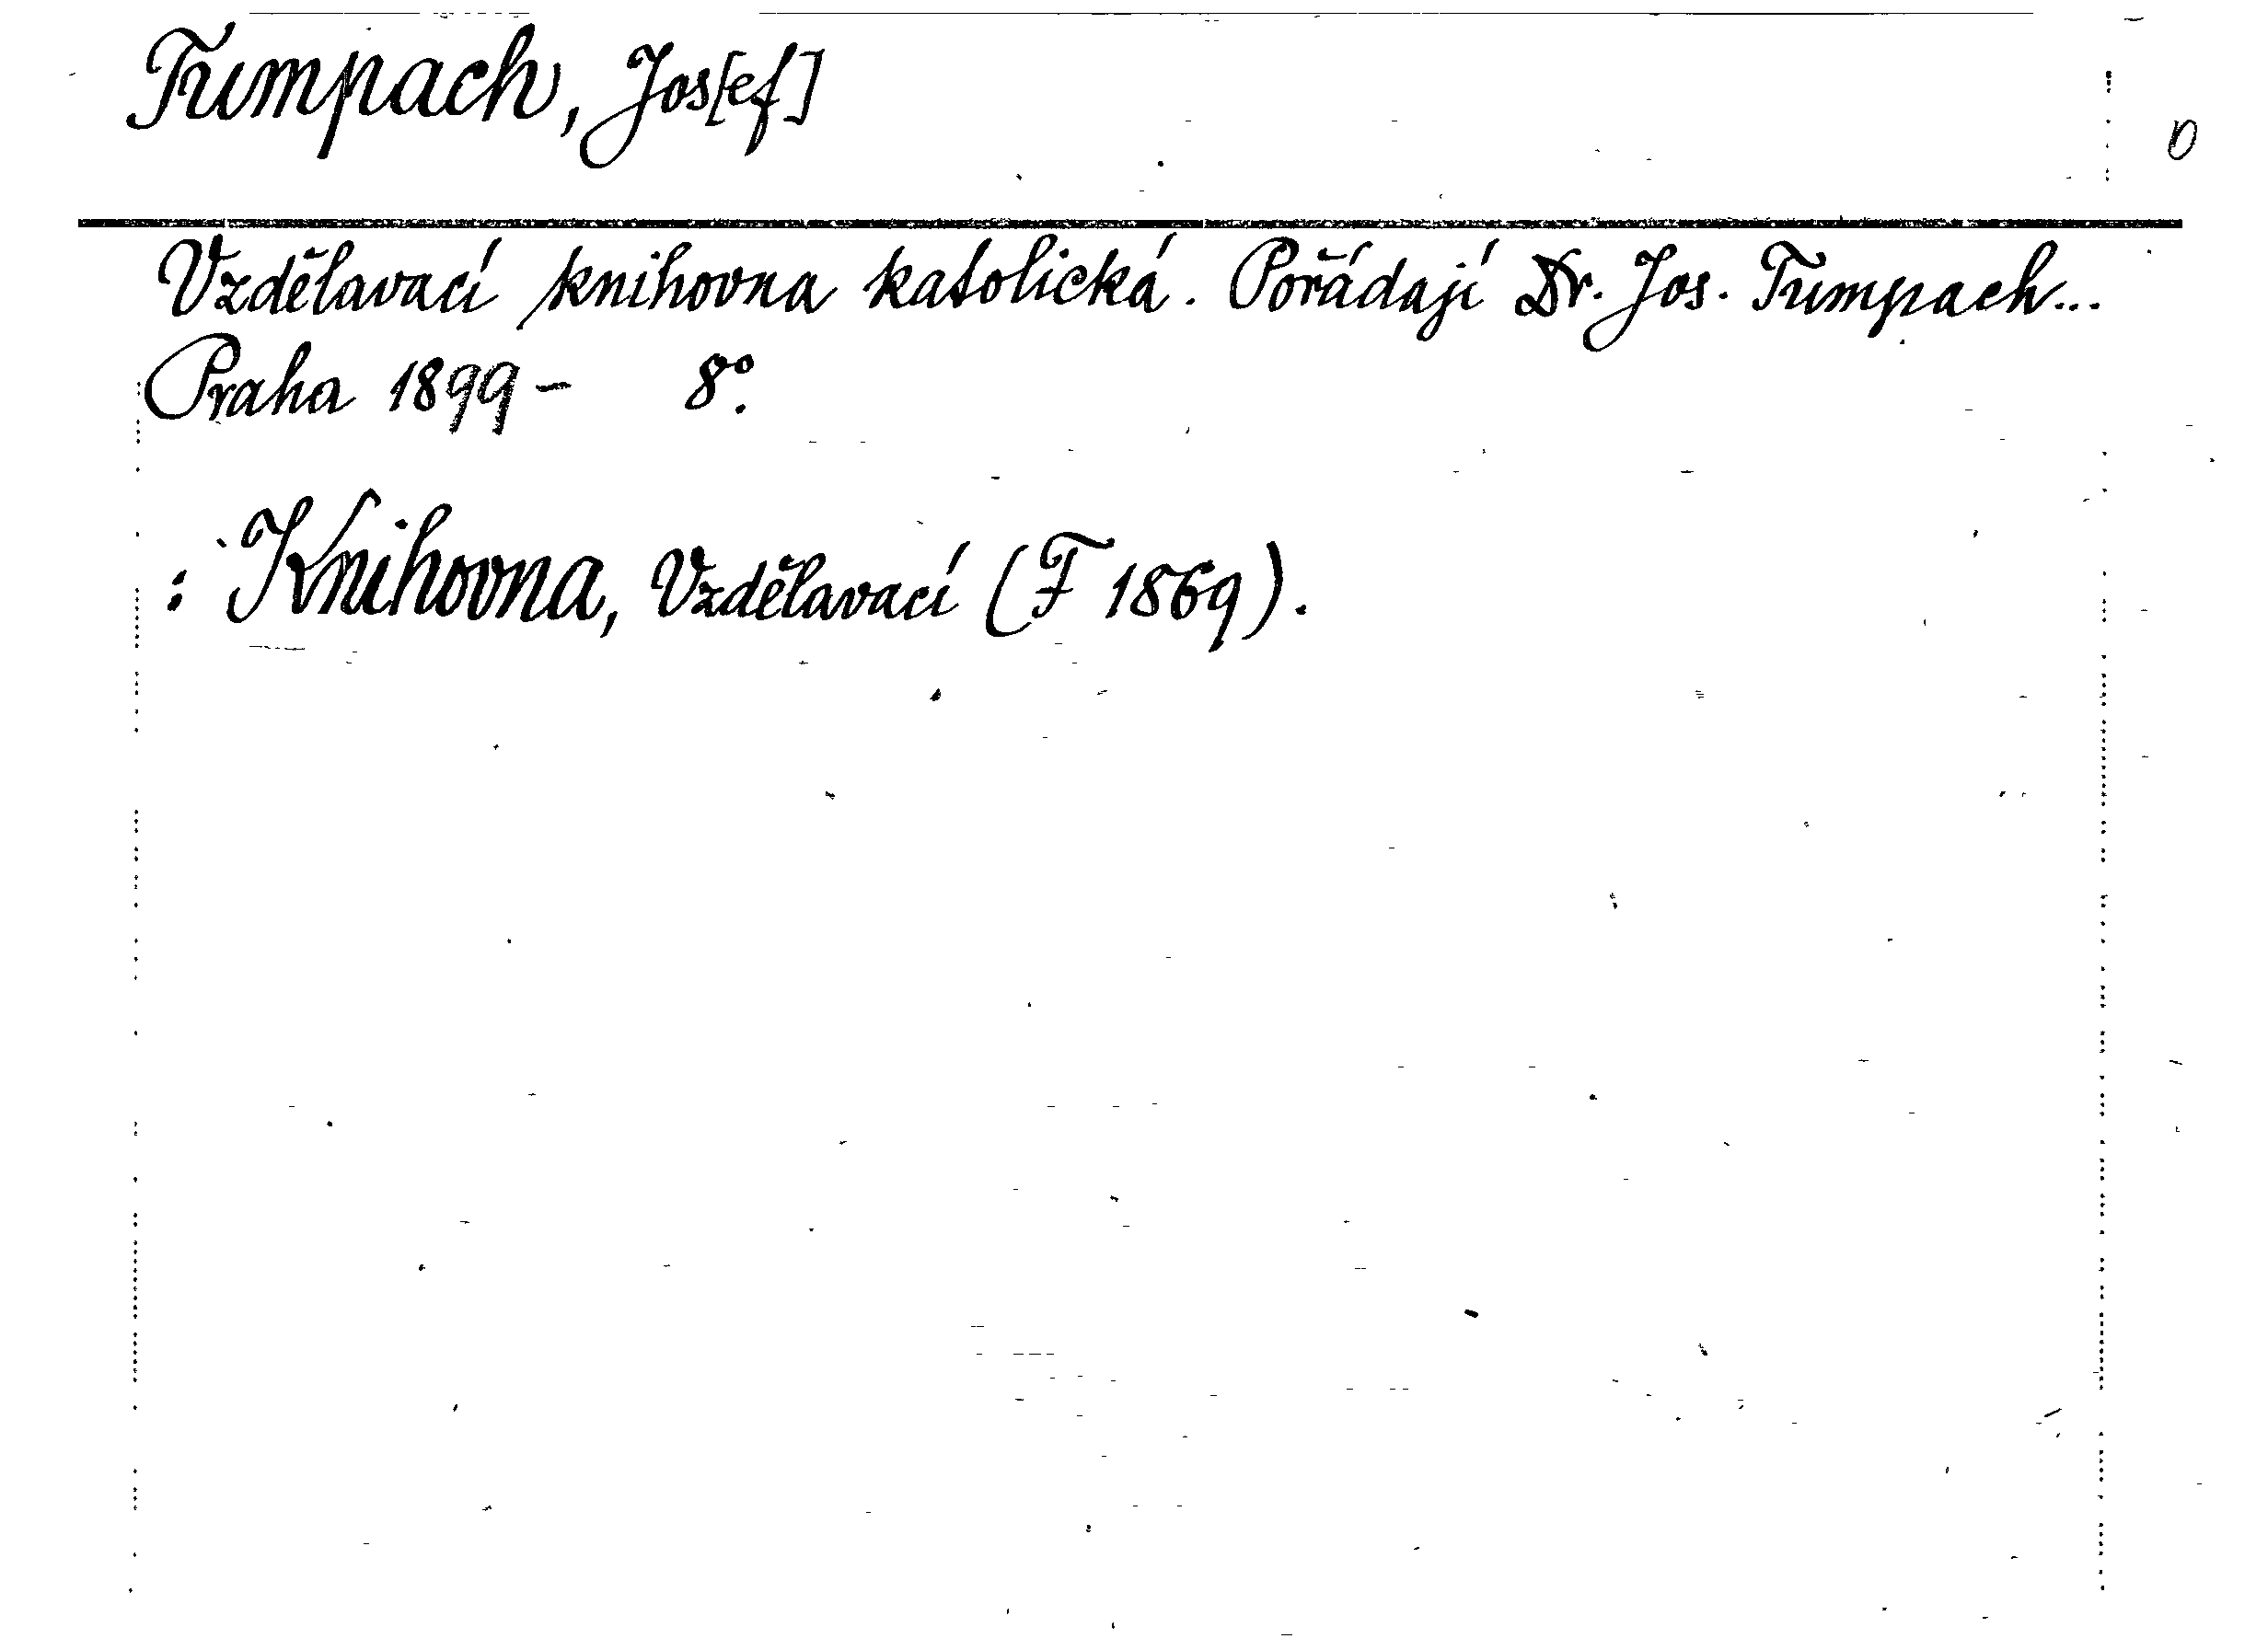 Tumpach, Jos[ef]
D
Vzdělavací knihovna katolická. Pořádají Dr. Jos. Tumpach...
Praha 1899 - 8°.
: Knihovna, Vzdělavací (F 1869).